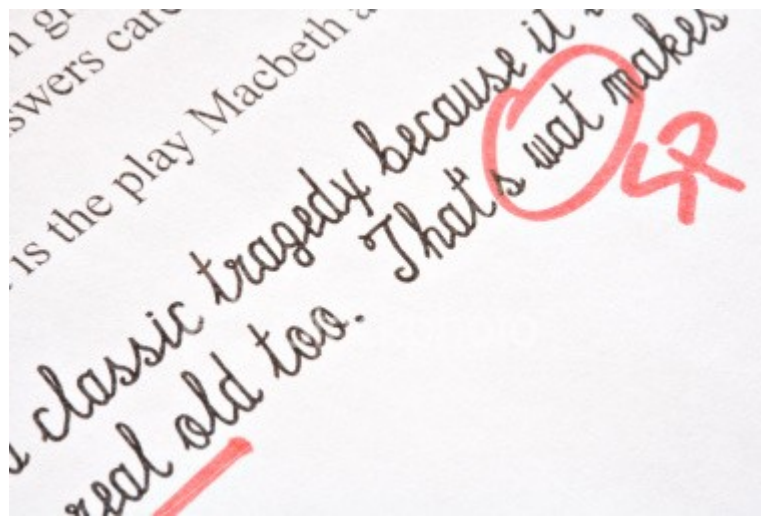 swers care
is the play Macbeth a
classic tragedy because it
real old too. That's wat makes
SP